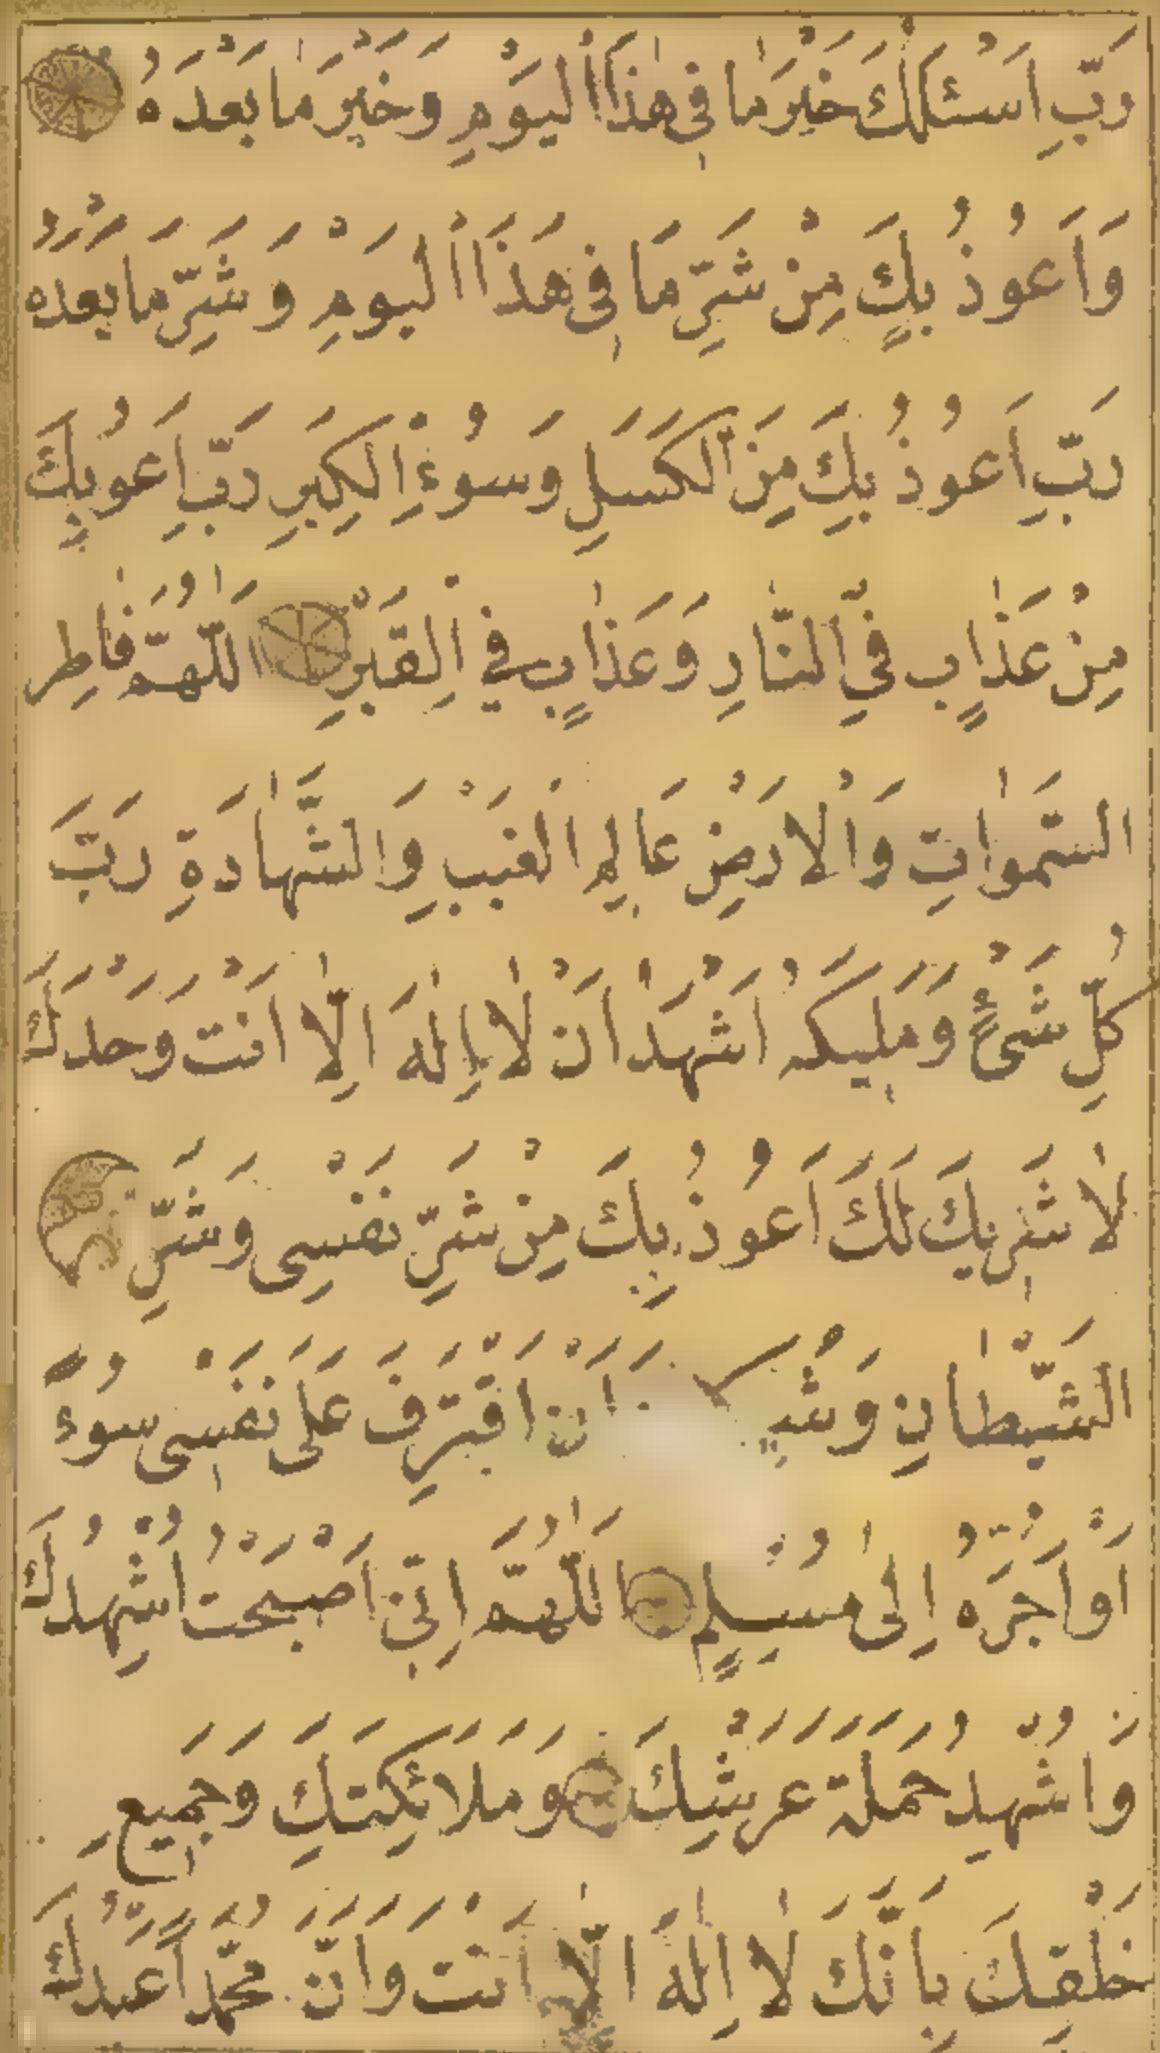 رَبِّ اَسْئَلُكَ خَيْرَ مَا فِى هٰذَا الْيَوْمِ وَخَيْرَ مَا بَعْدَهُ
وَاَعُوذُ بِكَ مِنْ شَرِّ مَا فِى هَذَا الْيَوْمِ وَشَرِّ مَا بَعْدَهُ
رَبِّ اَعُوذُ بِكَ مِنَ الْكَسَلِ وَسُوءِ الْكِبَرِ رَبِّ اَعُوبِكَ
مِنْ عَذَابٍ فِى النَّارِ وَعَذَابٍ فِي الْقَبْرِ اَللّٰهُمَّ فَاطِر
السَّمٰوَاتِ وَالْاَرْضِ عَالِمِ الْغَيْبِ وَالشَّهَادَةِ رَبَّ
كُلِّ شَىْءٍ وَمَلِيكَهُ اَشْهَدُ اَنْ لَا اِلٰهَ اِلَّا اَنْتَ وَحْدَكَ
لَا شَرِيكَ لَكَ اَعُوذُ بِكَ مِنْ شَرِّ نَفْسِى وَشَرِّ
الشَّيْطَانِ اَنْ اَقْتَرِفَ عَلَى نَفْسِى سُوءً
اَوْ اَجُرَّهُ اِلٰى مُسْلِمٍ اَللّٰهُمَّ اِنِّى اَصْبَحْتُ اُشْهِدُكَ
وَاُشْهِدُ حَمَلَةَ عَرْشِكَ وَمَلَائِكَتِكَ وَجَمِيعِ
خَلْقِكَ بِاَنَّكَ لَا اِلٰهَ اِلَّا اَنْتَ وَاَنَّ مُحَمَّدًا عَبْدُكَ